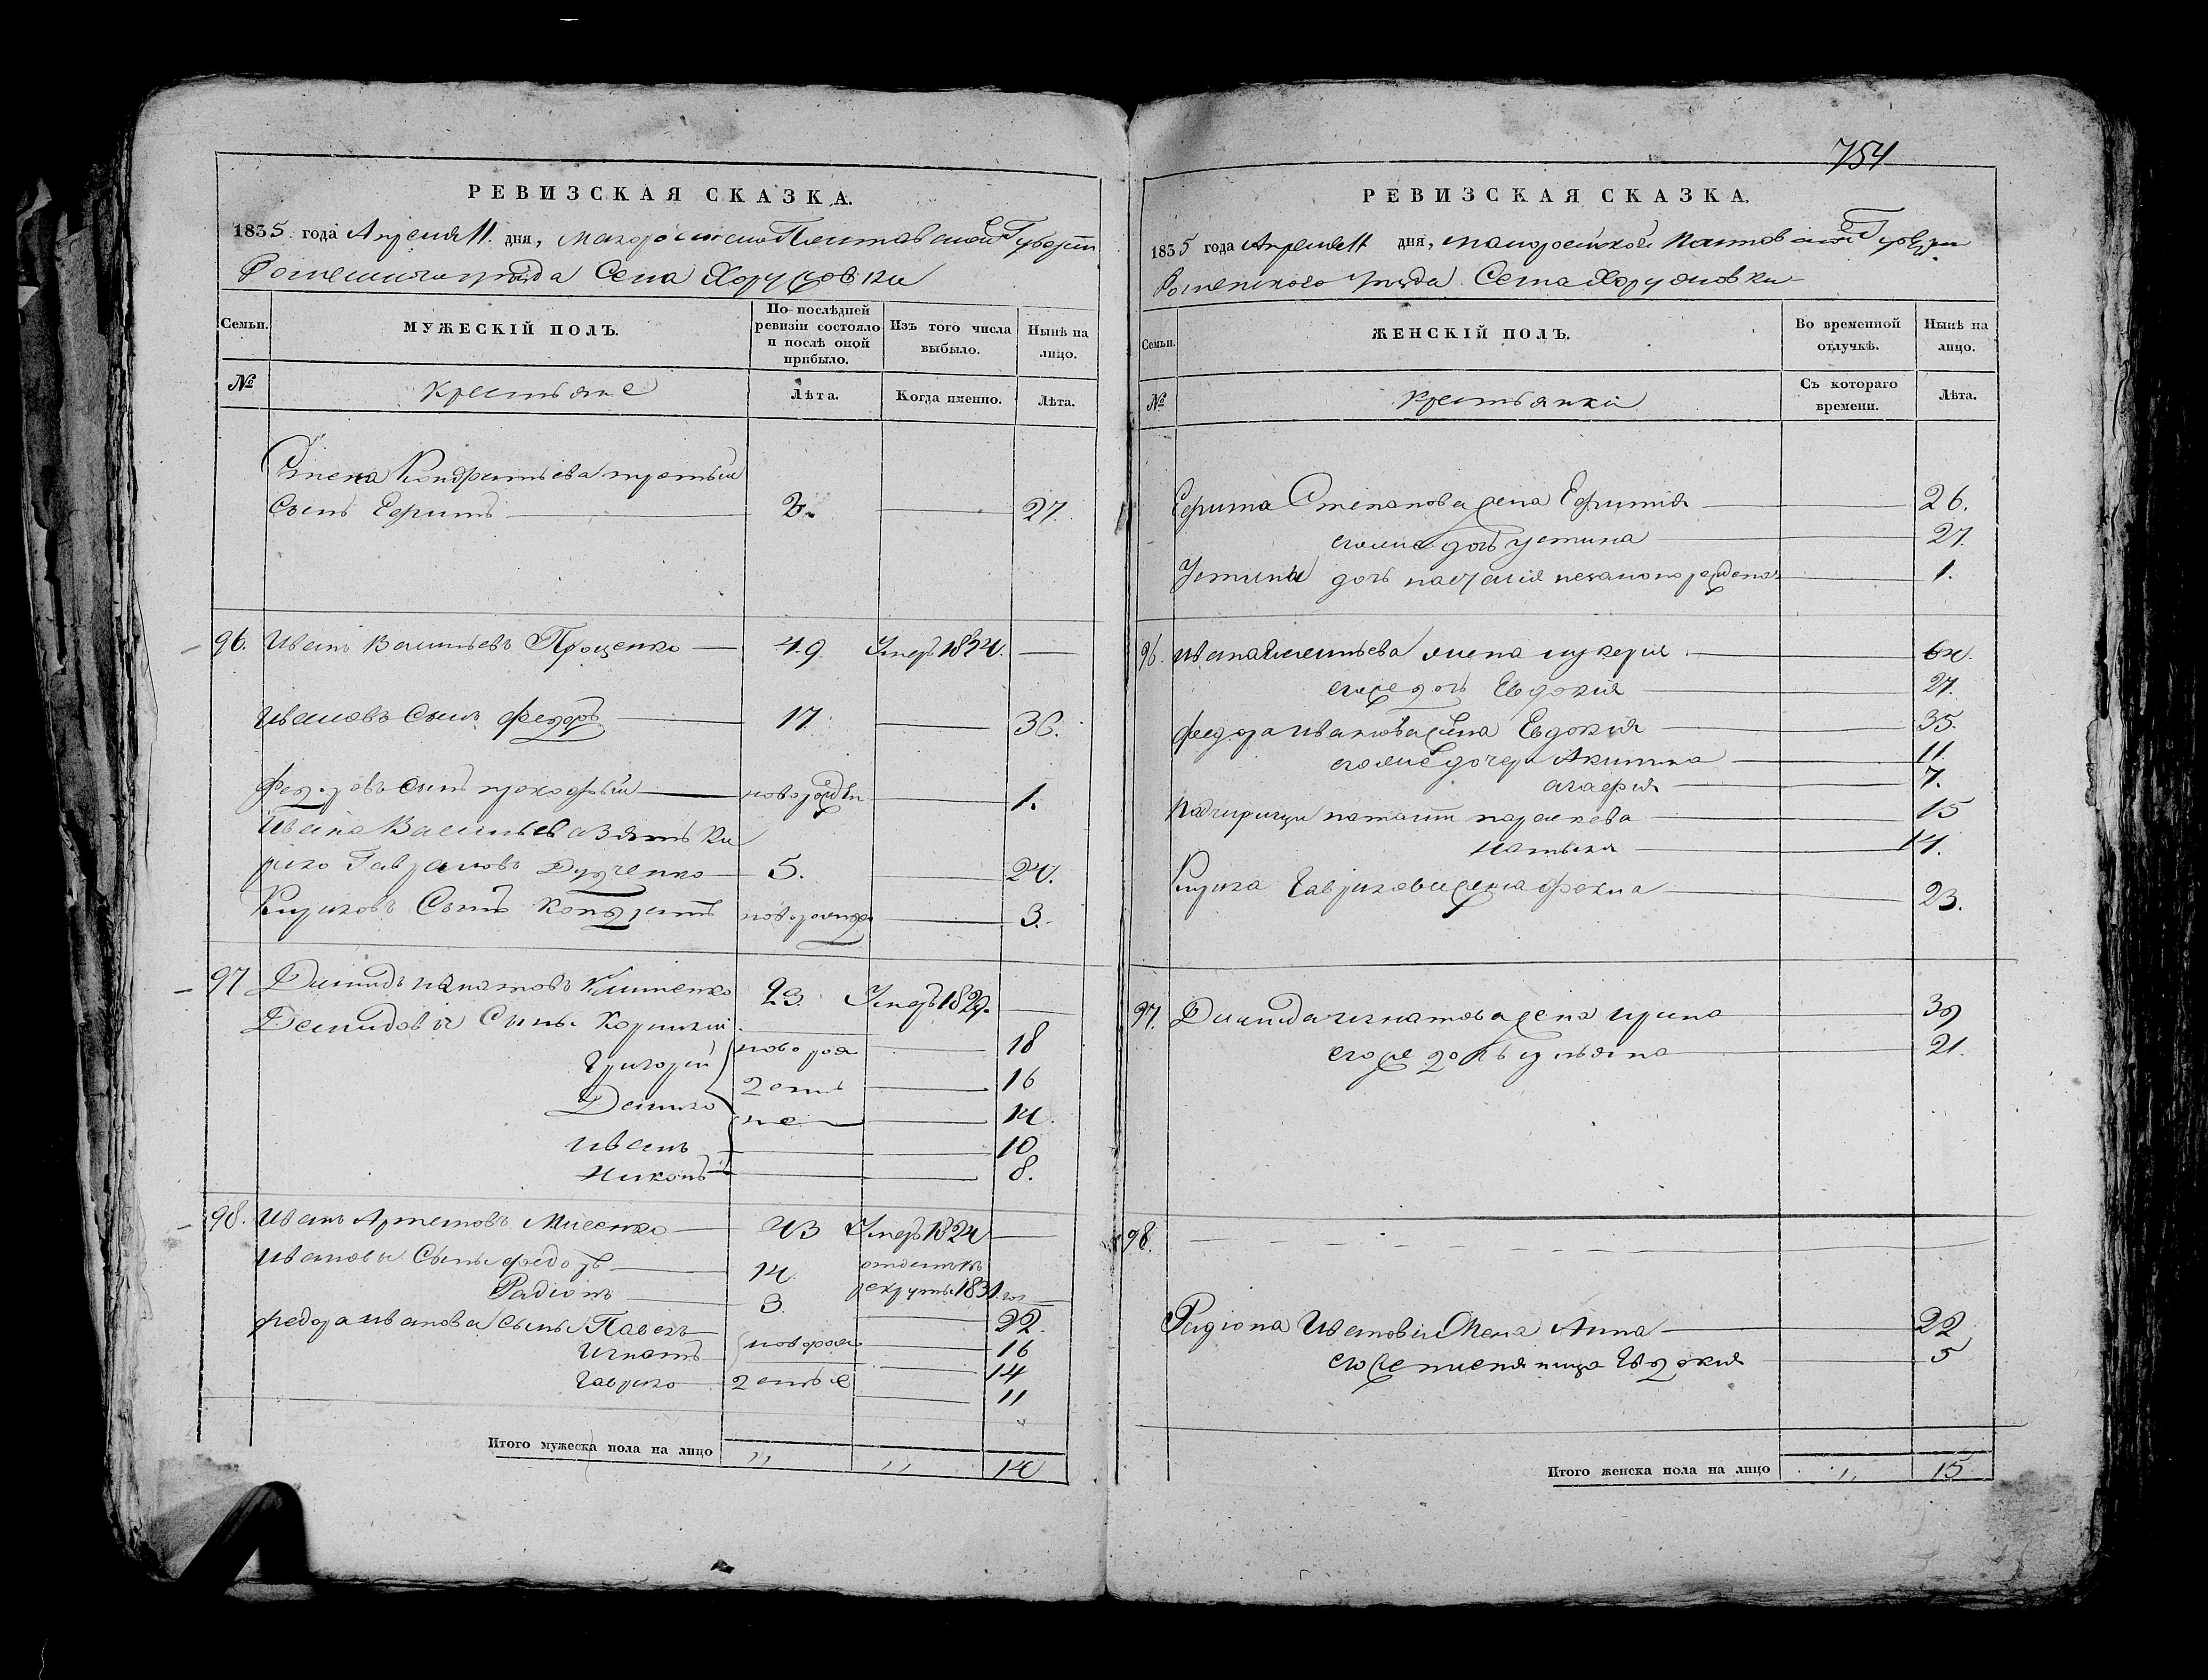 РЕВИЗСКАЯ СКАЗКА.
1835 года Апреля 11 дня, Малоросийско Полтавской Губернии
Роменского уезда Села Хоружовки
Семьи.
МУЖЕСКІЙ ПОЛЪ.
По послѣдней ревизіи состояло и послѣ оной прибыло.
Изъ того числа выбыло.
Нынѣ на лицо.
№
крестьяне
Лѣта.
Когда именно.
Лѣта.
Степана Кондратьева третьи
Сынъ Ефимъ 27.
96. Иванъ Васильевъ Проценко — 49 Умеръ 1824. —
Ивановъ Сынъ федоръ 17. 36.
Федоровъ сынъ прокофѣй новорожден 1.
Ивана Васильева Зять Ки
рило Гавриловъ Дудченко 5. 24.
Кириловъ Сынъ Кондратъ новорожде 3.
97 Демидъ Игнатовъ Клименко 23. Умеръ 1829. —
Демидовы Сыны Корнилий 18
Григорий новорож 16
Демко денъ 14.
Иванъ 10
Никонъ 8.
98. Иванъ Артемовъ Мисенко 43 Умеръ 1824 —
Ивановы Сыны федоръ 14. отданъ въ рекруты 1831 го —
Радіонъ 3. 22.
федора иванова сыны Павелъ новорож 16
Игнатъ 14
Гаврило денъ 11
Итого мужеска пола на лицо ,, ,, 14
754
РЕВИЗСКАЯ СКАЗКА.
1835 года Апреля 11 дня, малоросийской Полтавской Губернии
Роменского уезда Села Хоружовки
Семьи.
ЖЕНСКІЙ ПОЛЪ.
Во временной отлучкѣ.
Нынѣ на лицо.
№
крестьянки
Съ котораго времени.
Лѣта.
Ефима Степанова жена Ефимия 26.
его же дочь устина 27.
Устины дочь наталия незаконорожденая 1.
96. Ивана Васильева жена лукерия 64.
его же дочь Евдокия 27.
федора иванова жена Евдокия 35.
его же дочери Акилина 11.
агафия 7.
падчерици параскева 15
14.
Кирила Гаврилова жена фекла 23.
97. Демида игнатова жена ирина 39
его же дочь ульяна 21.
98. — — — — — —
Радіона Иванова Жена Анна 22
его же племяница Евдокия 5
Итого женска пола на лицо ,, 15